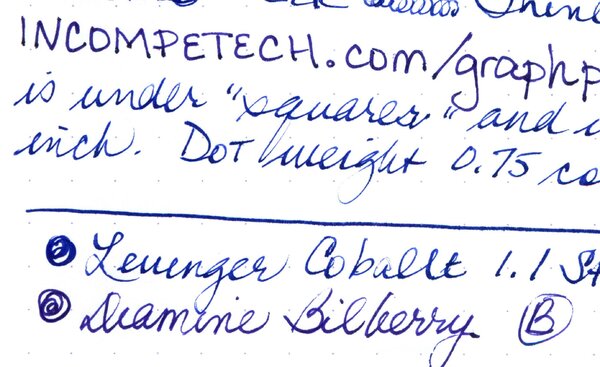 Shine
INCOMPETECH.com/graphp
is under "squares" and i
inch. Dot weight 0.75 co
Levenger Cobalt 1.1 St
Diamine Bilberry B